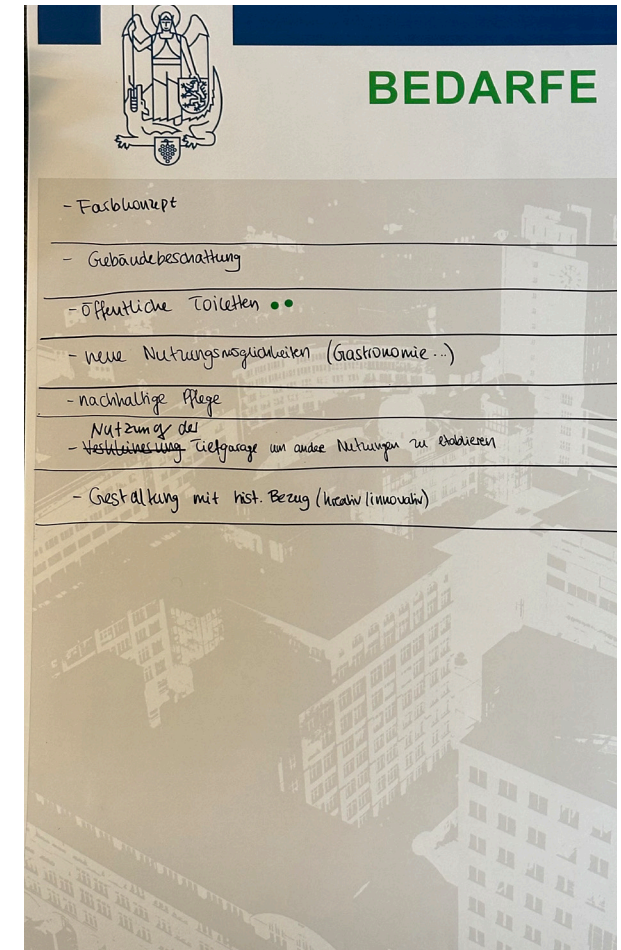 BEDARFE
- Farbkonzept
- Gebäudebeschattung
- Öffentliche Toiletten
- neue Nutzungsmöglichkeiten (Gastronomie...)
- nachhaltige Pflege
Nutzung der
- Verkleinerung Tiefgarage um andere Nutzungen zu etablieren
- Gestaltung mit hist. Bezug (kreativ/innovativ)